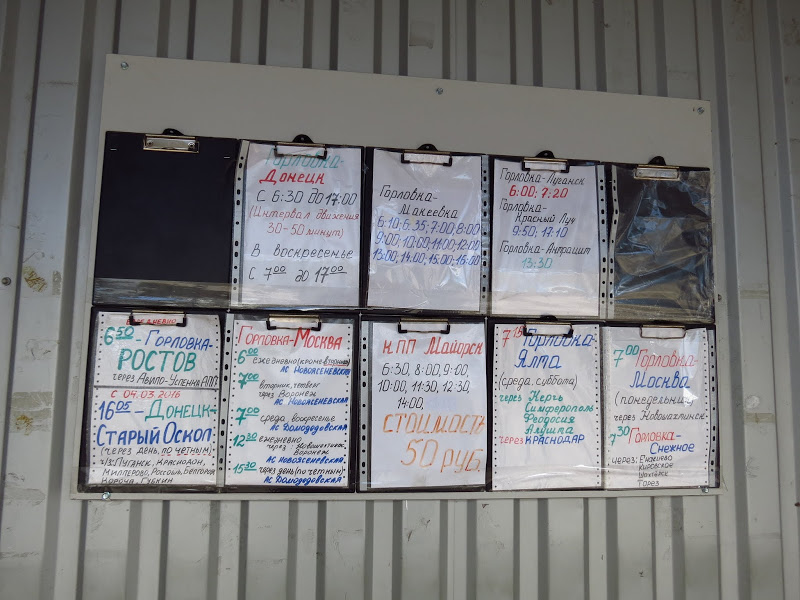 Горловка-
Донецк
С 6:30 до 17:00
(Интервал движения
30-50 минут)
В воскресенье
С 7⁰⁰ до 17⁰⁰
Горловка-
Макеевка
6:10; 6:35; 7:00; 8:00
9:00; 10:00; 11:00; 12:00
13:00, 14:00; 15:00; 16:00
Горловка-Луганск
6:00; 7:20
Горловка-
Красный Луч
9:50; 17:10
Горловка-Антрацит
13:30
Ежедневно
6⁵⁰-Горловка-
РОСТОВ
через Авило-Успенка
С 04.03.2016
16⁰⁵-Донецк-
Старый Оскол
(через день, по чётным)
ч/з: Луганск, Краснодон,
Миллерово, Россошь, Белгород
Короча, Губкин
Горловка-Москва
6⁰⁰ ежедневно (кроме вторника)
АС Новоясеневская
7⁰⁰ вторник, четверг
через Воронеж
АС Новоясеневская
7⁰⁰ среда, воскресенье
АС Домодедовская
12³⁰ ежедневно
через: Новошахтинск,
Воронеж
АС Новоясеневская
15³⁰ через день (по чётным)
АС Домодедовская
КПП Майорск
6:30, 8:00, 9:00,
10:00, 11:30, 12:30,
14:00,
СТОИМОСТЬ
50 руб.
7¹⁵ Горловка-
Ялта
(среда, суббота)
через Керчь
Симферополь
Феодосия
Алушта
через Краснодар
7⁰⁰ Горловка-
Москва
(понедельник)
через Новошахтинск
7³⁰ Горловка-
Снежное
через: Енакиево
Кировское
Шахтёрск
Торез